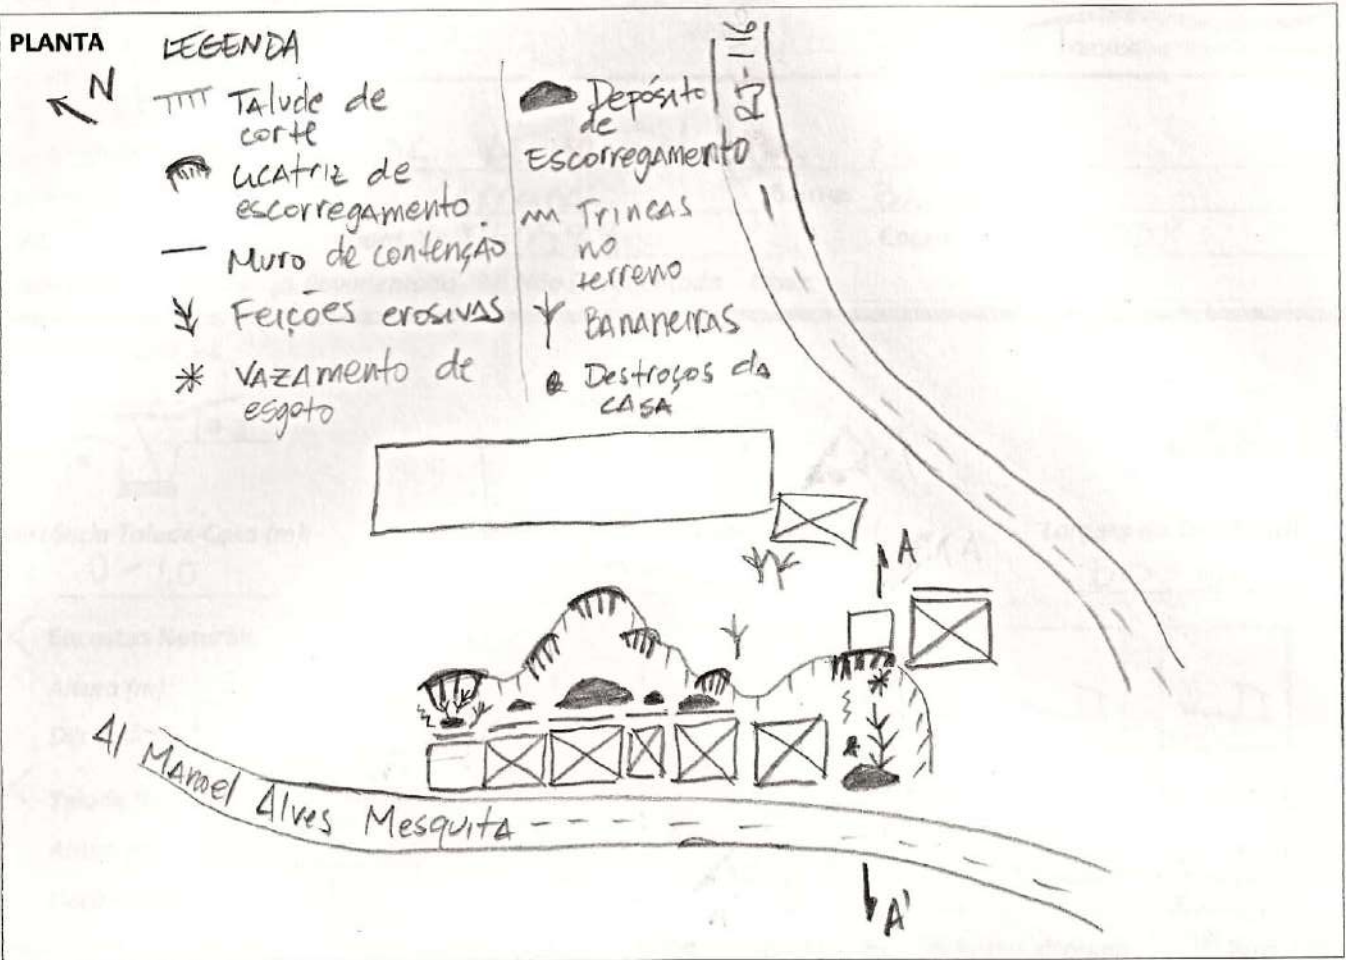 PLANTA
N
LEGENDA
Talude de
corte
Cicatriz de
escorregamento
Muro de contenção
Feições erosivas
Vazamento de
esgoto
Depósito
de
Escorregamento
Trincas
no
terreno
Bananeiras
Destroços da
casa
BR-116
A
Al Manoel Alves Mesquita
A'